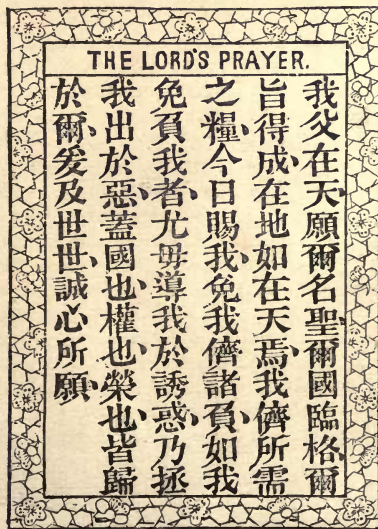 THE LORD'S PRAYER.
我父在天、願爾名聖、爾國臨格、爾
旨得成、在地如在天焉、我儕所需
之糧、今日賜我、免我儕諸負、如我
免負我者、尤毋導我於誘惑、乃拯
我出於惡、蓋國也、權也、榮也、皆歸
於爾、爰及世世、誠心所願、